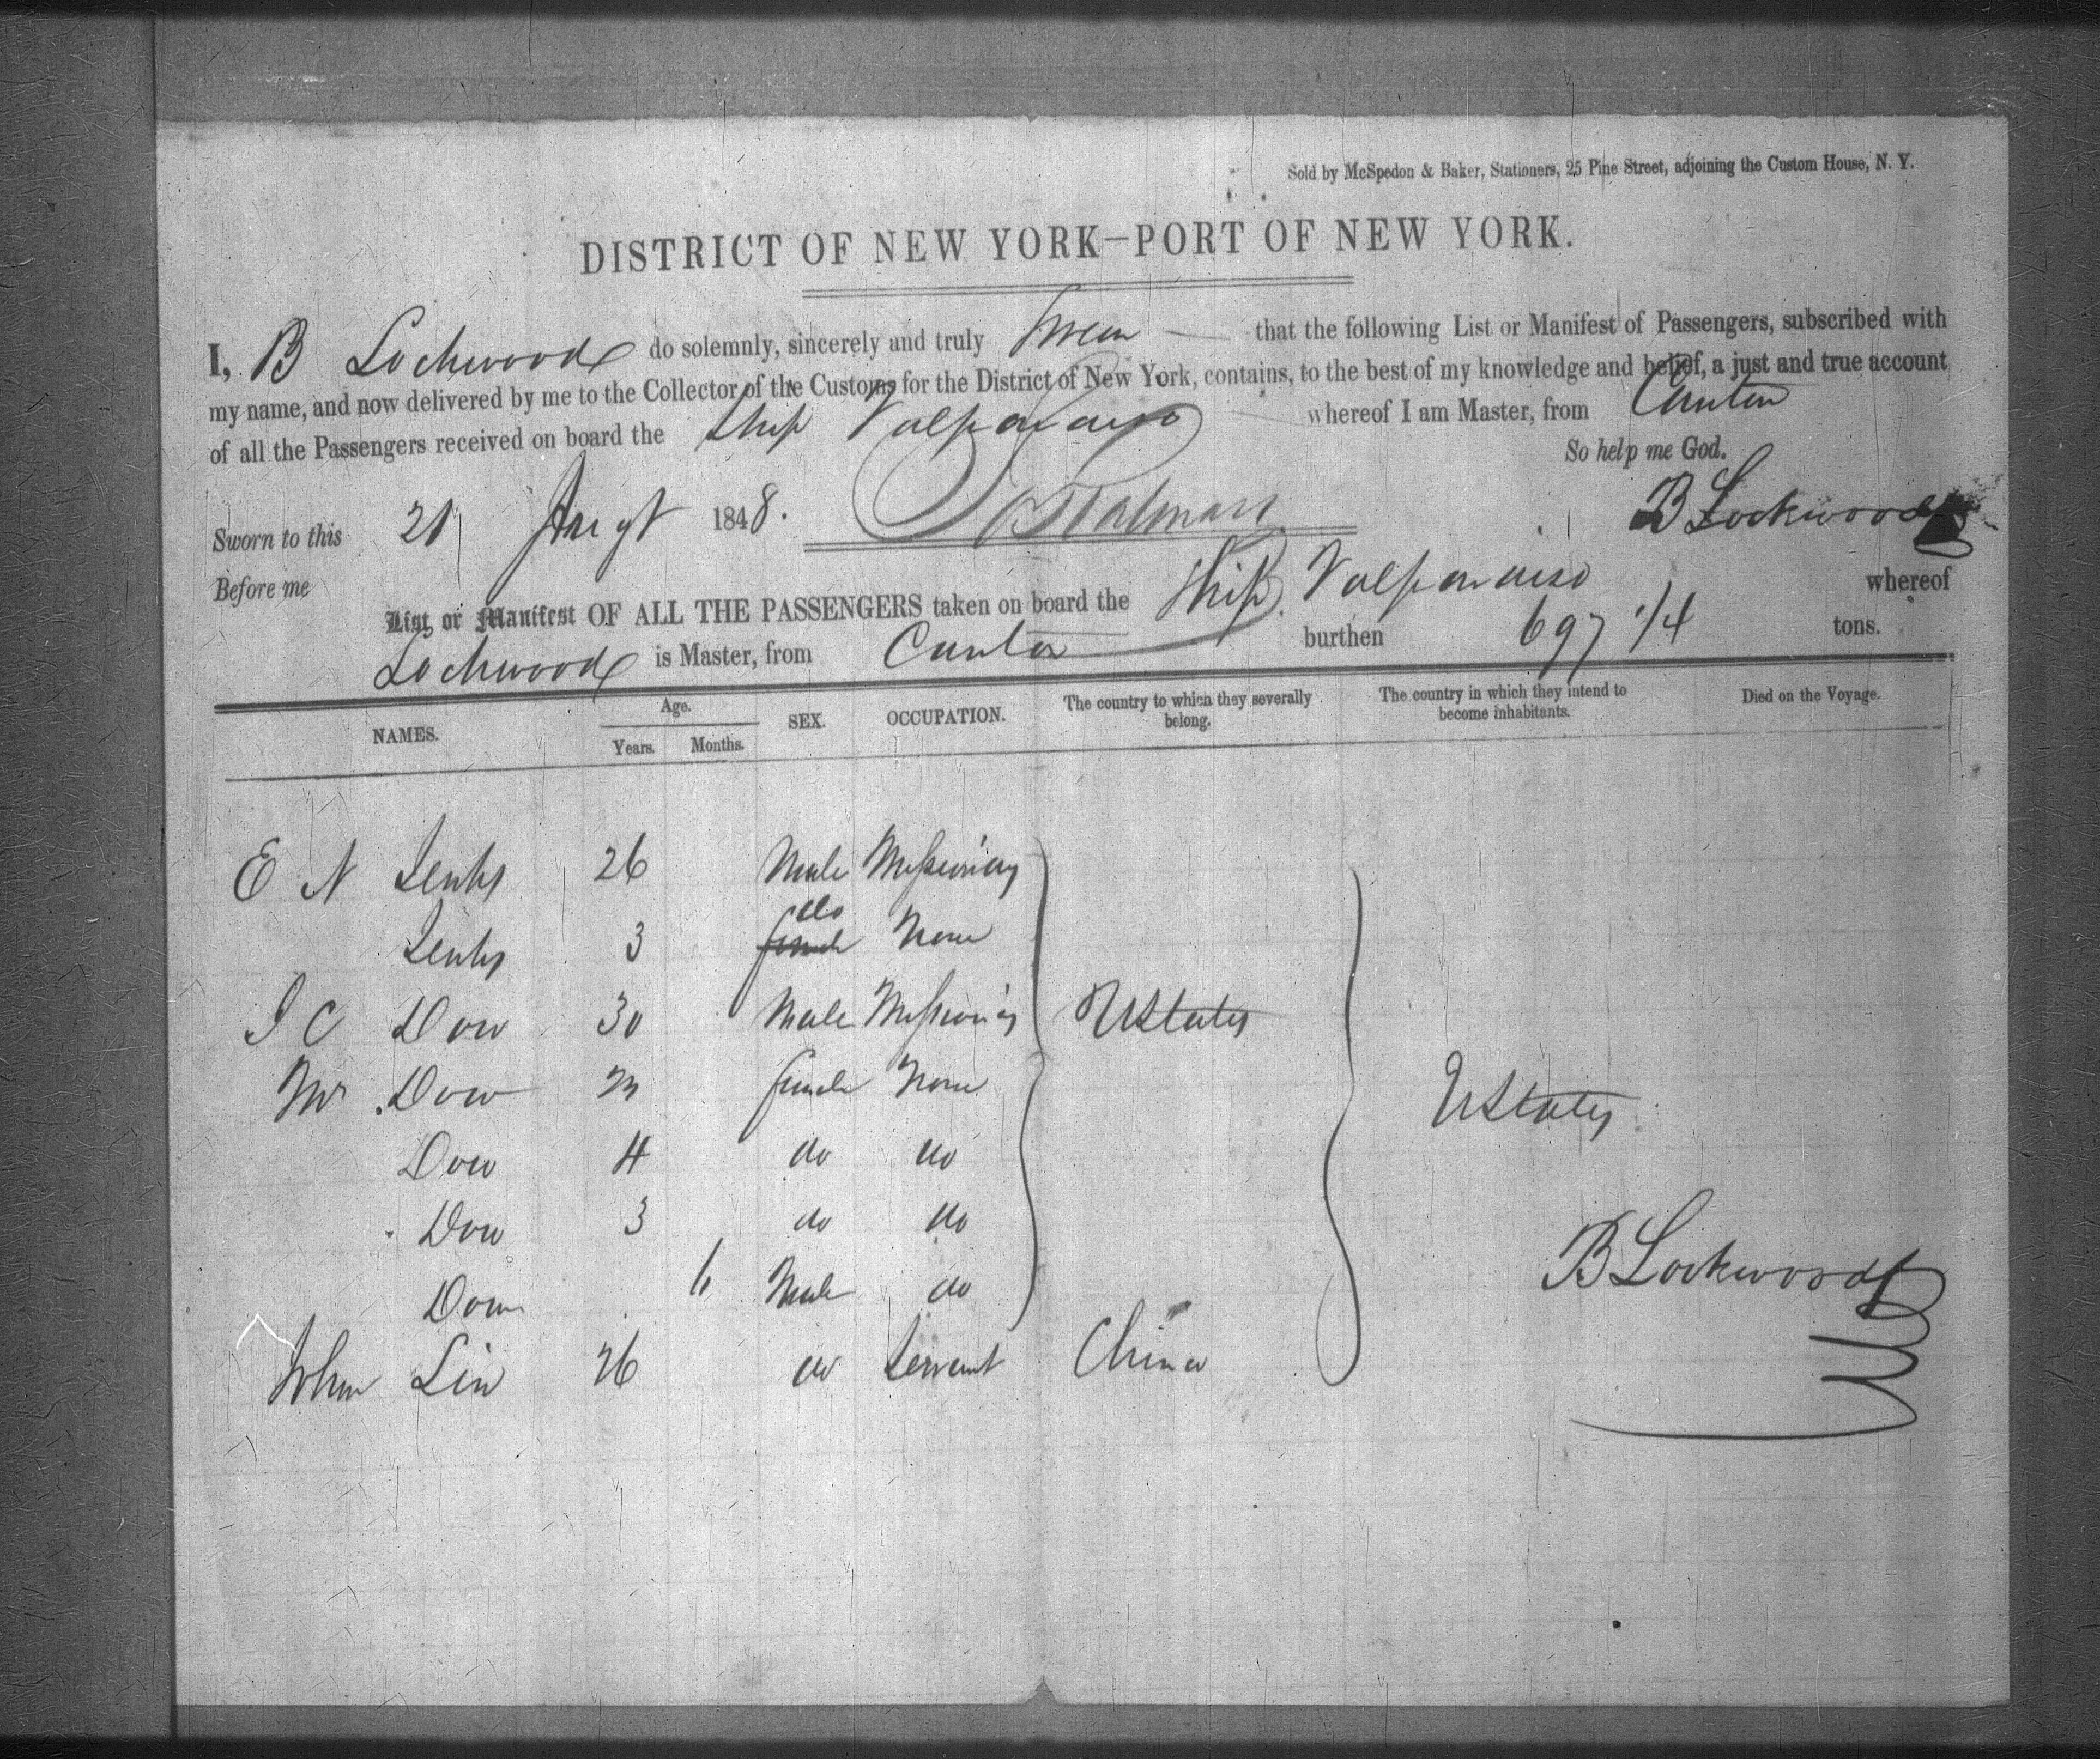 Sold by McSpedon & Baker, Stationers, 25 Pine Street, adjoining the Custom House, N. Y.
DISTRICT OF NEW YORK—PORT OF NEW YORK.
I, B Lockwood do solemnly, sincerely and truly Swear that the following List or Manifest of Passengers, subscribed with
my name, and now delivered by me to the Collector of the Customs for the District of New York, contains, to the best of my knowledge and belief, a just and true account
of all the Passengers received on board the Ship Valparaiso whereof I am Master, from Canton
So help me God.
Sworn to this 21 Augt 1848. B Lockwood
Before me
List or Manifest OF ALL THE PASSENGERS taken on board the Ship Valparaiso whereof
Lockwood is Master, from Canton burthen 697 1/4 tons.
NAMES. Age. Years. Months. SEX. OCCUPATION. The country to which they severally belong. The country in which they intend to become inhabitants. Died on the Voyage.
E N Jenks 26 Male Missionary
Jenks 3 do female None
J C Dow 30 Male Missionary UStates
Dow female None UStates
Dow 4 do do
Dow 3 do do
Dow 6 Male do B Lockwood
Lin 26 do Servant China